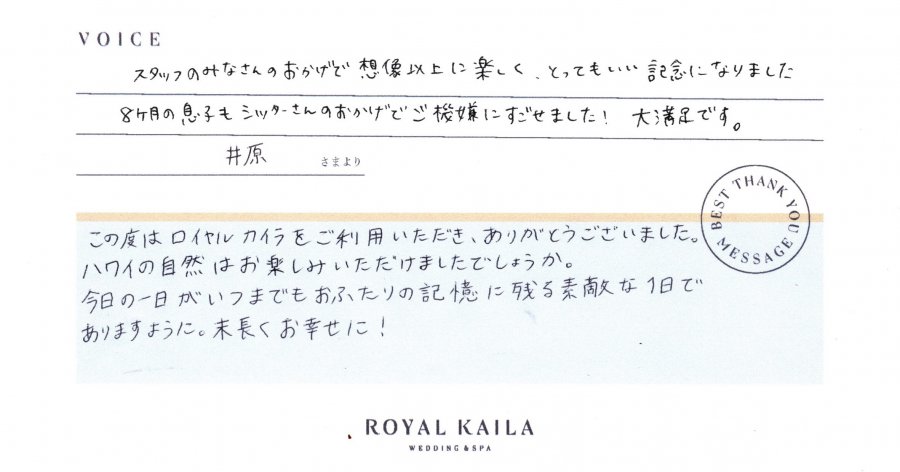 VOICE
スタッフのみなさんのおかげで想像以上に楽しく、とってもいい記念になりました
8ヶ月の息子もシッターさんのおかげでご機嫌にすごせました! 大満足です。
井原 さまより
BEST THANK YOU MESSAGE
この度はロイヤルカイラをご利用いただき、ありがとうございました。
ハワイの自然はお楽しみいただけましたでしょうか。
今日の一日がいつまでもおふたりの記憶に残る素敵な1日で
ありますように。末長くお幸せに!
ROYAL KAILA
WEDDING & SPA